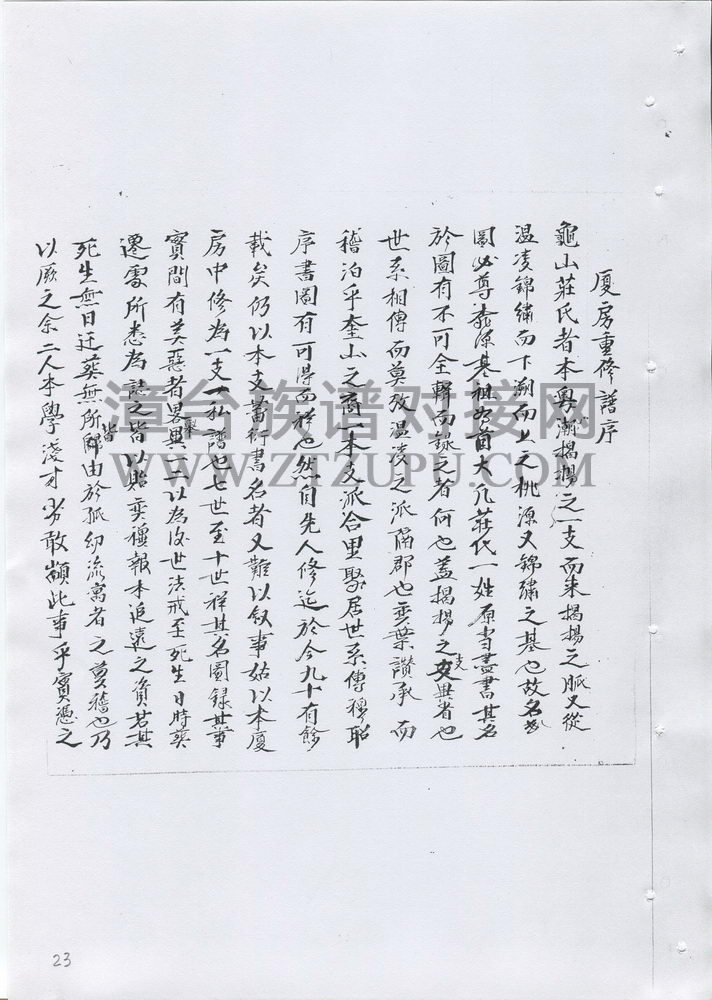 厦房重修譜序
龜山莊氏者本粵漸揭揚之一支而來揭揚之脈又從
温凌錦繡而下溯而上之桃源又錦繡之基也故名
圖必尊義源基祖為首大凡莊代一姓原當盡書其名
於圖有不可全輯而錄之者何也蓋揭揚之支安毕者也
世系相傳而莫攷温凌之派隔郡也奕葉讚承而
稽泊乎奎山之裔一本支派合里聚居世系傳穆昭
序書圖有可得而祥也然自先人修迄於今九十有餘
載矣仍以本支蕃衍書名者又難以叙事姑以本廈
房中修為一支一私譜也七世至十世祥其名圖錄其事
實間有美惡者畧舉一二以為後世法戒至死生日時葬
遷處所悉為誌之皆以貽奕穫報本追遠之資若其
死生無日迁葬無所歸皆由於孤幼流寓者之莫稽也乃
以厥之余二人本學淺才劣敢顓此事乎實憑之
漳台族谱对接网
WWW.ZTZUPU.COM
23